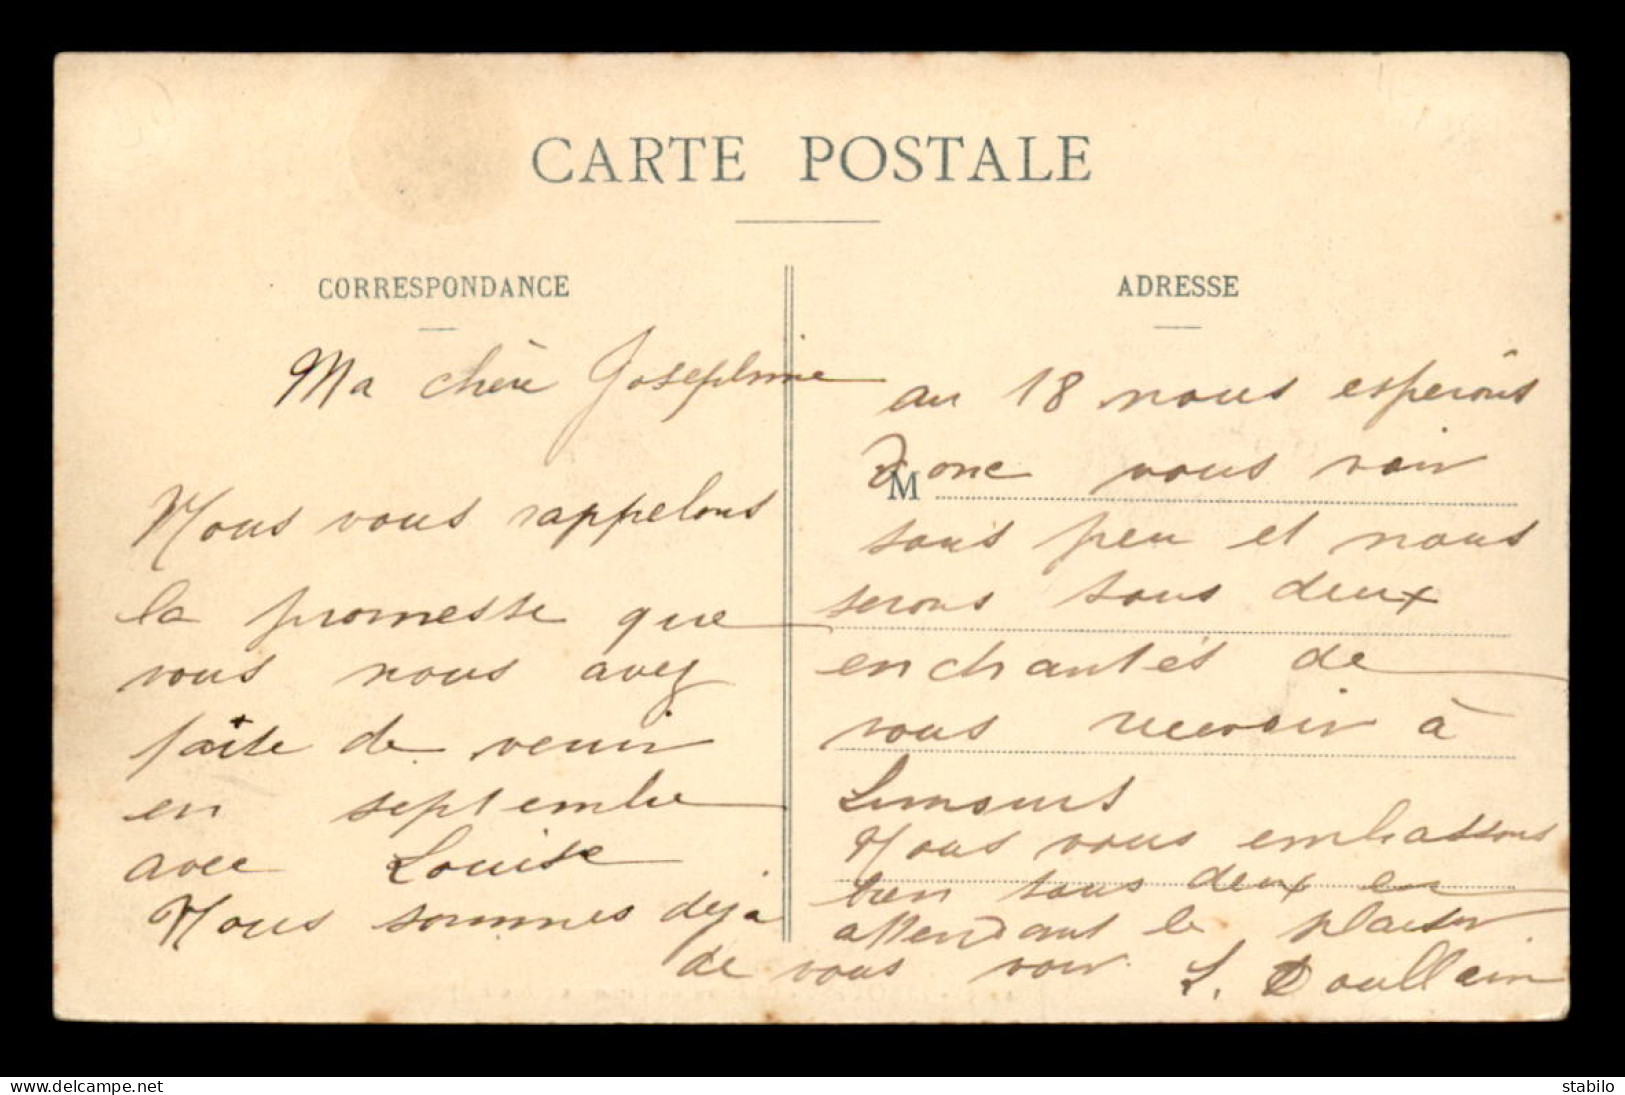 CARTE POSTALE
CORRESPONDANCE
Ma chère Josephine
Nous vous rappelons
la promesse que
vous nous avez
faite de venir
en septembre
avec Louise
Nous sommes déjà
ADRESSE
au 18 nous esperons
M
donc vous voir
sous peu et nous
serons tous deux
enchantés de
vous recevoir à
Limours
Nous vous embrassons
bien tous deux en
attendant le plaisir
de vous voir. L. Doullain
delcampe.net
stabilo